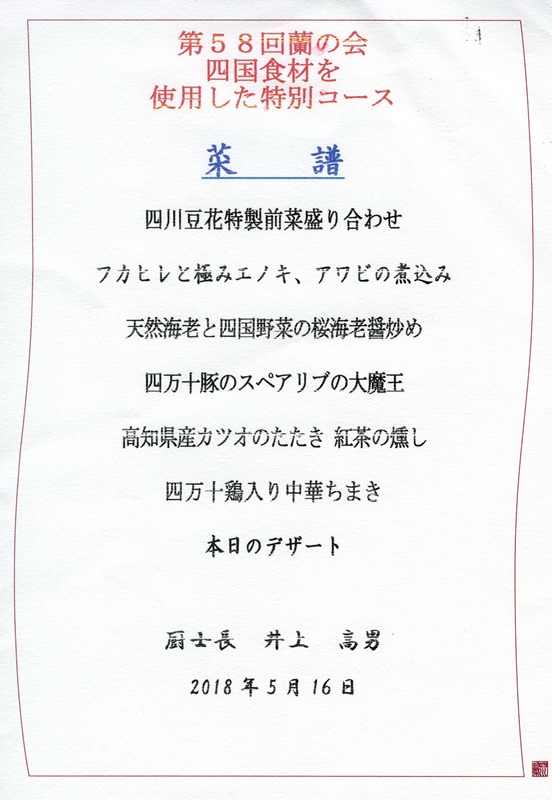 第５８回蘭の会
四国食材を
使用した特別コース
菜　譜
四川豆花特製前菜盛り合わせ
フカヒレと極みエノキ、アワビの煮込み
天然海老と四国野菜の桜海老醤炒め
四万十豚のスペアリブの大魔王
高知県産カツオのたたき 紅茶の燻し
四万十鶏入り中華ちまき
本日のデザート
厨士長　井上　高男
2018年5月16日